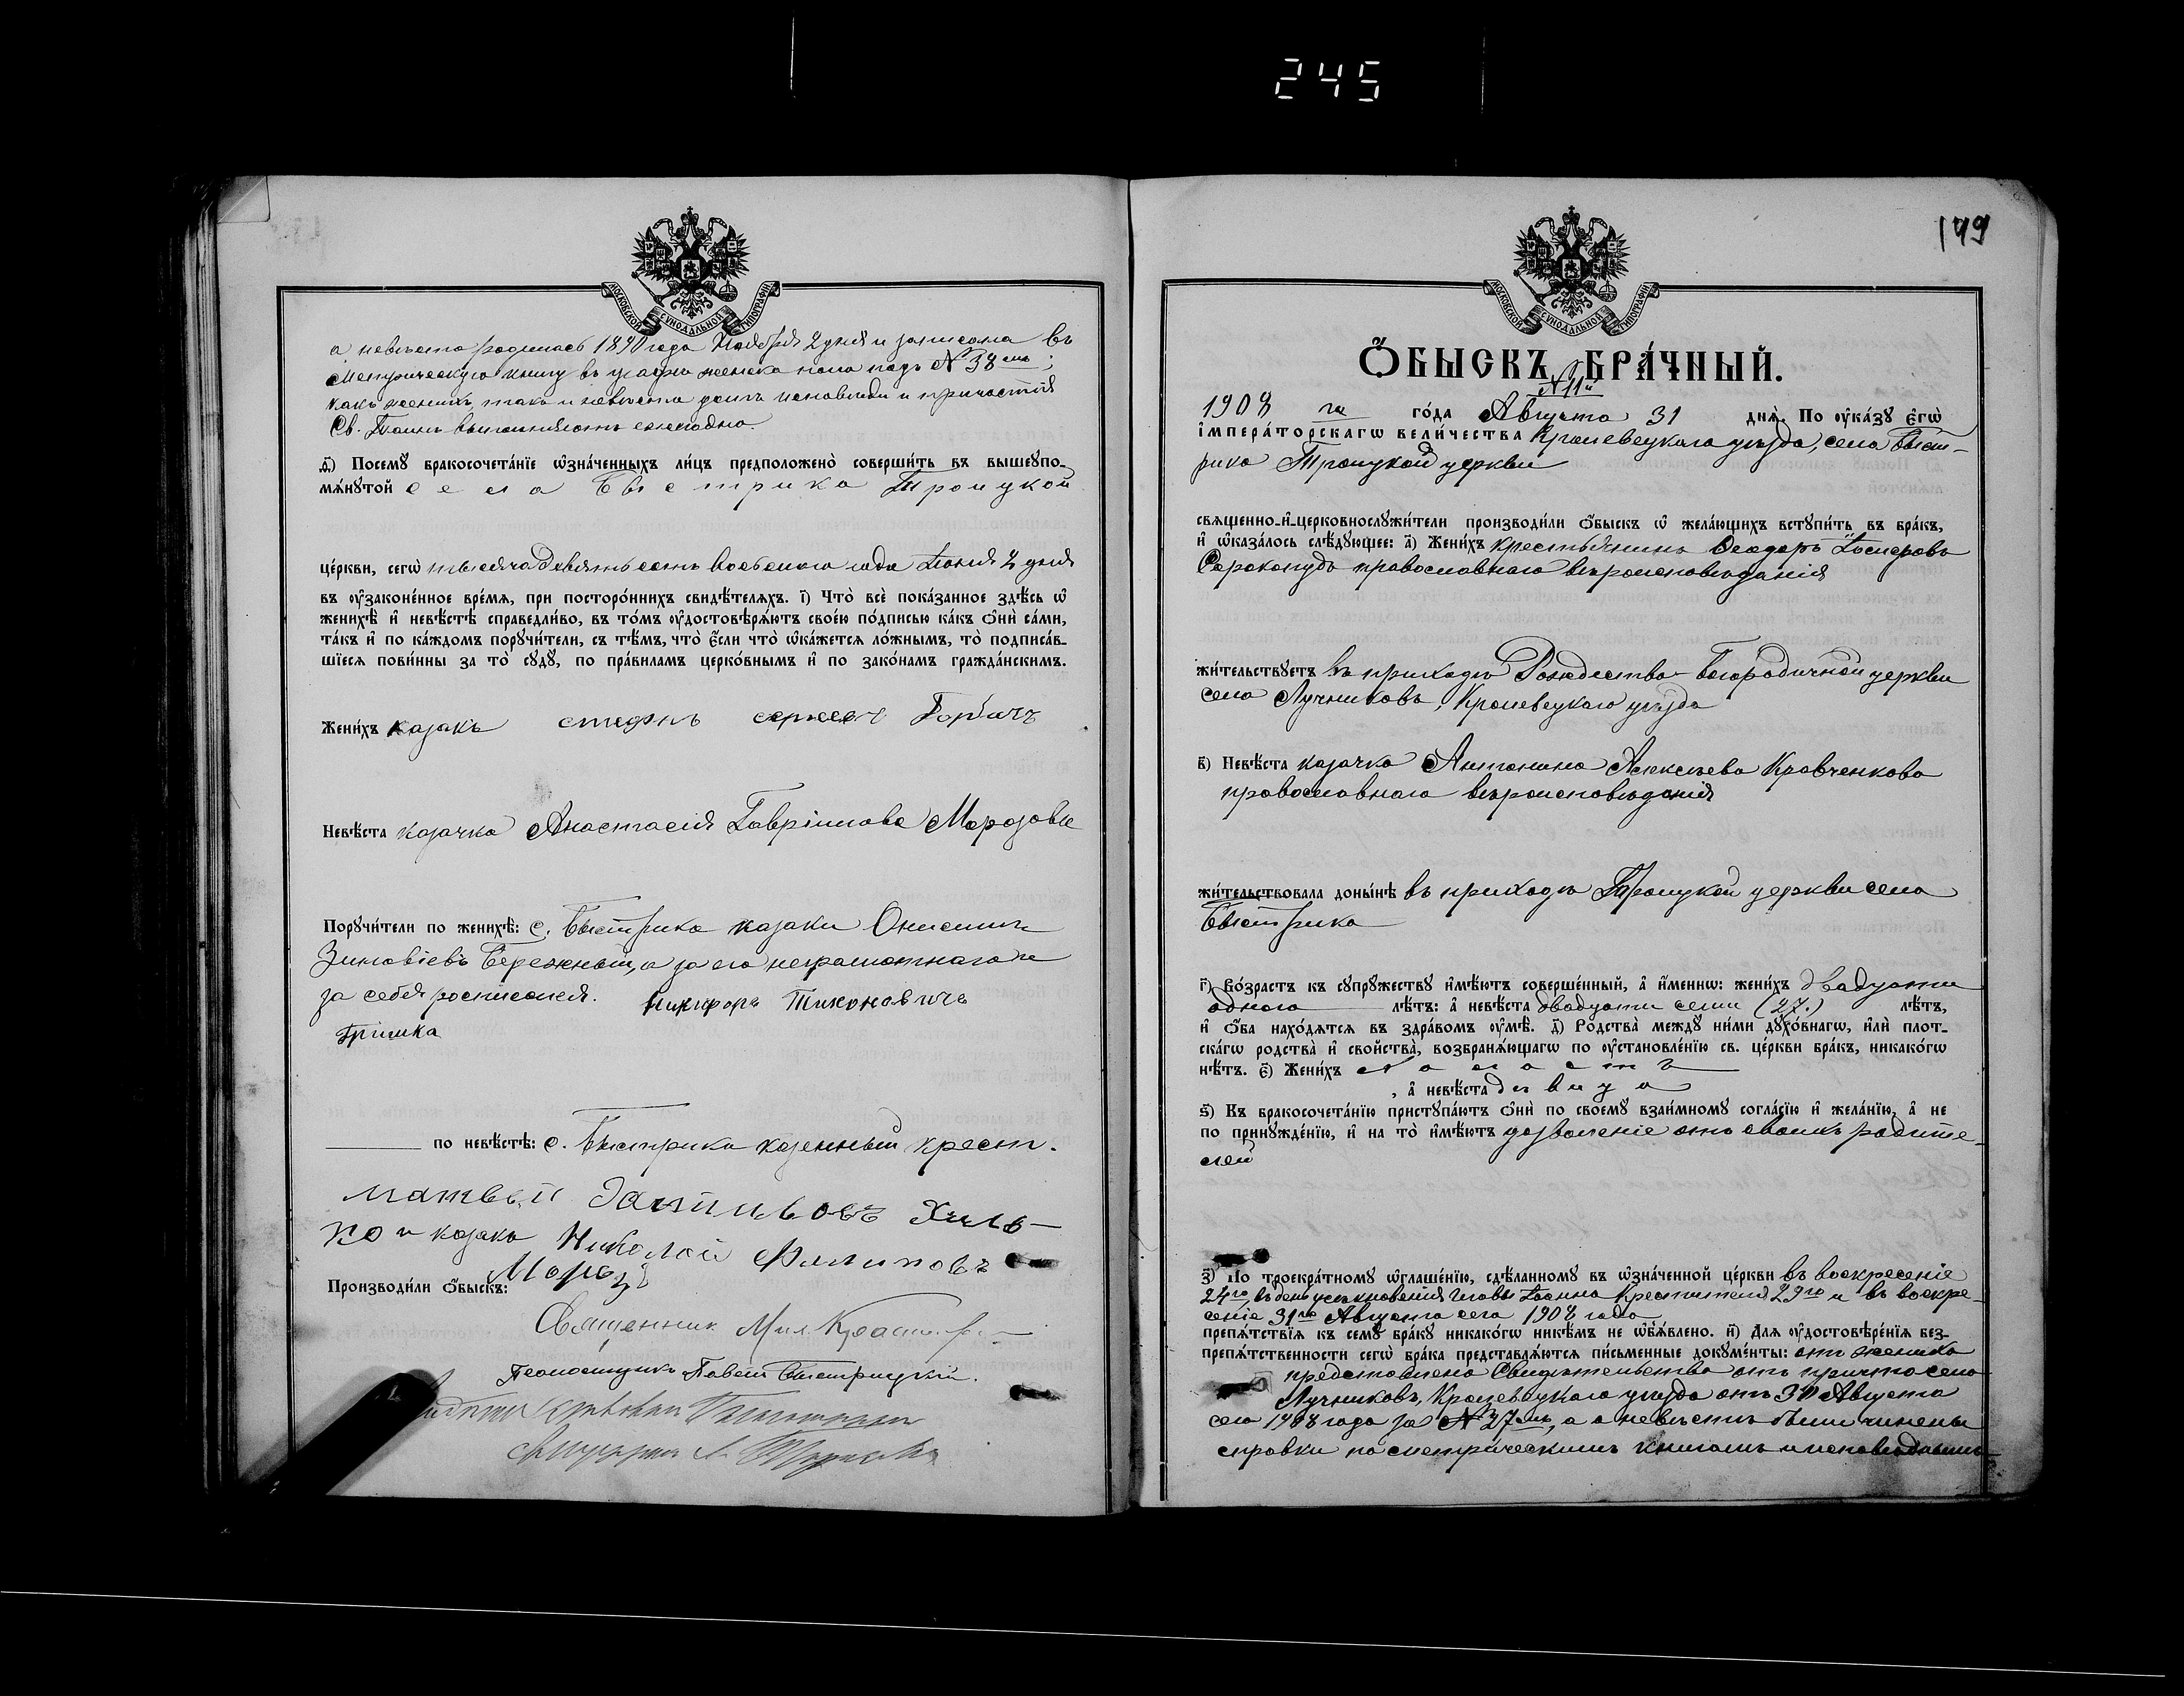 245
МОСКОВСКОЙ СѴНОДАЛЬНОЙ ТИПОГРАФІИ
а невѣста родилась 1890 года Ноября 2 дня и записана въ
Метрическую книгу въ графѣ женска пола подъ № 38емъ;
какъ женихъ, такъ и невѣста долгъ исповѣди и причастія
Св. Таинъ выполняютъ ежегодно.
ѳ҃) Посемꙋ̀ бракосочета́нїе ѡ҆зна́ченныхъ ли́цъ предположено̀ соверши́ть въ вышеꙋпо-
мѧ́нꙋтой села Быстрика Троицкой
це́ркви, сегѡ̀ тысяча девятьсотъ восьмого года Іюня 2 дня
въ ᲂу҆законе́нное вре́мѧ, при посторо́ннихъ свидѣ́телѧхъ. і҃) Что̀ всѐ пока́занное здѣ́сь ѡ҆
женихѣ̀ и҆ невѣ́стѣ справедли́во, въ то́мъ ᲂу҆достовѣрѧ́ютъ свое́ю по́дписью ка́къ ѻ҆нѝ са́ми,
та́къ и҆ по ка́ждомъ порꙋчи́тели, съ тѣ́мъ, что̀ є҆́сли что̀ ѡ҆ка́жетсѧ ло́жнымъ, то̀ подписа́в-
шїесѧ пови́нны за то̀ сꙋдꙋ̀, по пра́виламъ церко́внымъ и҆ по зако́намъ гражда́нскимъ.
Жени́хъ казакъ стефанъ Горбачъ
Невѣ́ста казачка Анастасія Гавріилова Морозова
Порꙋчи́тели по женихѣ̀: с. Быстрика казаки Онисимъ
Зиновіевъ Бережный, а за его неграмотнаго и
за себя росписался. Никифоръ Тихоновичъ
Гришка
по невѣ́стѣ: с. Быстрика казенный крест.
матвѣй Даниловъ Хиль-
ко и казакъ Николай Филиповъ
Морозъ
Производи́ли ѻ҆́быскъ:
Священникъ Мих.
Псаломщикъ Павелъ Быстрицкій.
149
МОСКОВСКОЙ СѴНОДАЛЬНОЙ ТИПОГРАФІИ
Ѻ҆́БЫСКЪ БРА́ЧНЫЙ.
№ 11й
1908 го го́да Августа 31 днѧ̀. По ᲂу҆ка́зꙋ є҆гѡ̀
і҆мпера́торскагѡ вели́чества Кролевецкаго уѣзда, села Быст-
рика Троицкой церкви
свѧщенно-и҆-церковнослꙋжи́тели производи́ли ѻ҆́быскъ ѡ҆ жела́ющихъ встꙋпи́ть въ бра́къ,
и҆ ѡ҆каза́лось слѣ́дꙋющее: а҃) Жени́хъ крестьянинъ Ѳеодоръ
Сорокопудъ православнаго вѣроисповѣданія
жи́тельствꙋетъ въ приходѣ Рождество-Богородичной церкви
села Лучниковъ, Кролевецкаго уѣзда
в҃) Невѣ́ста казачка Антонина Алексѣева Кравченкова
православнаго вѣроисповѣданія
жи́тельствовала доны́нѣ въ приходѣ Троицкой церкви села
Быстрика
г҃) Во́зрастъ къ сꙋпрꙋ́жествꙋ и҆мѣ́ютъ соверше́нный, а҆ и҆́меннѡ: жени́хъ двадцати
одного лѣ́тъ: а҆ невѣ́ста двадцати семи (27.) лѣ́тъ,
и҆ ѻ҆́ба нахо́дѧтсѧ въ здра́вомъ ᲂу҆мѣ̀. д҃) Родства̀ междꙋ̀ ни́ми дꙋхо́внагѡ, и҆лѝ плот-
ска́гѡ родства̀ и҆ свойства̀, возбранѧ́ющагѡ по ᲂу҆становле́нїю св. це́ркви бра́къ, никако́гѡ
нѣ́тъ. є҃) Жени́хъ холостъ
, а҆ невѣ́ста дѣвица
ѕ҃) Къ бракосочета́нїю пристꙋпа́ютъ ѻ҆нѝ по своемꙋ̀ взаи́мномꙋ согла́сїю и҆ жела́нїю, а҆ не
по принꙋжде́нїю, и҆ на то̀ и҆мѣ́ютъ дозволеніе отъ своихъ родите-
лей
з҃) По троекра́тномꙋ ѡ҆глаше́нїю, сдѣ́ланномꙋ въ ѡ҆зна́ченной це́ркви въ воскресеніе
24го, въ день усѣкновенія главы Іоанна Крестителя 29го и въ воскре-
сеніе 31го Августа сего 1908 года
препѧ́тствїѧ къ семꙋ̀ бра́кꙋ никако́гѡ никѣ́мъ не ѡ҆б̾ѧ́влено. и҃) Длѧ ᲂу҆достовѣре́нїѧ без-
препѧ́тственности сегѡ̀ бра́ка представлѧ́ютсѧ пи́сьменные докꙋме́нты: отъ жениха
представлено Свидѣтельство отъ причта села
Лучниковъ, Кролевецкаго уѣзда отъ 30 Августа
сего 1908 года за № 27емъ, а о невѣстѣ были чинены
справки по метрическимъ книгамъ и исповѣднымъ